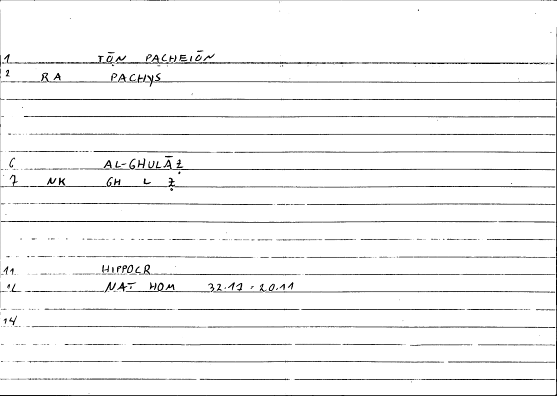 1 TŌN PACHEIŌN
2 RA PACHYS
6 AL-GHULĀẒ
7 NK GH L Ẓ
11 HIPPOCR
12 NAT HOM 32.13 = 20.11
14